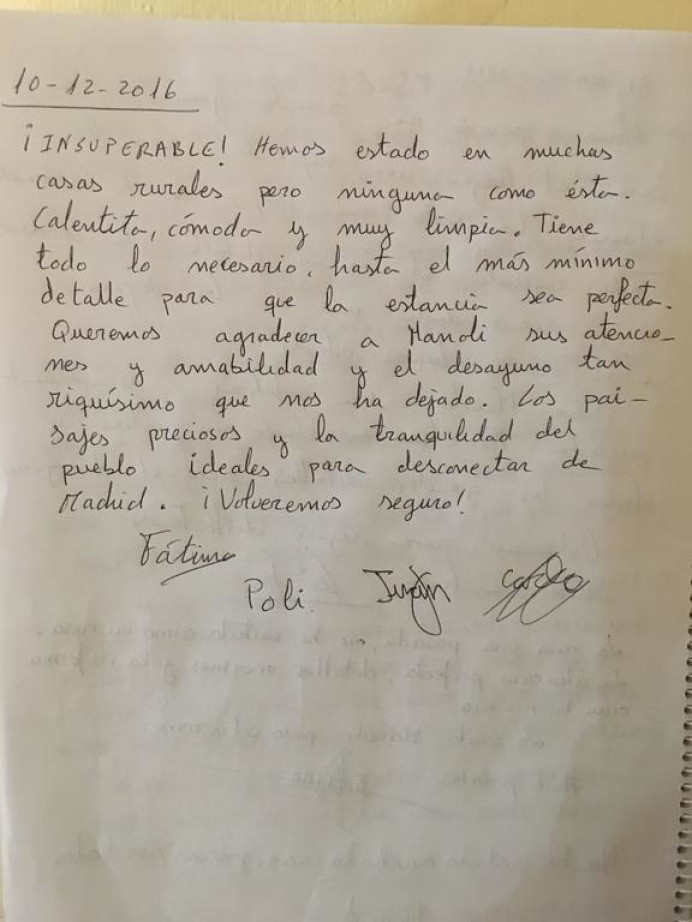 10-12-2016
¡INSUPERABLE! Hemos estado en muchas
casas rurales pero ninguna como ésta.
Calentita, cómoda y muy limpia. Tiene
todo lo necesario, hasta el más mínimo
detalle para que la estancia sea perfecta.
Queremos agradecer a Manoli sus atencio-
nes y amabilidad y el desayuno tan
riquísimo que nos ha dejado. Los pai-
sajes preciosos y la tranquilidad del
pueblo ideales para desconectar de
Madrid. ¡Volveremos seguro!
Fátima
Poli.